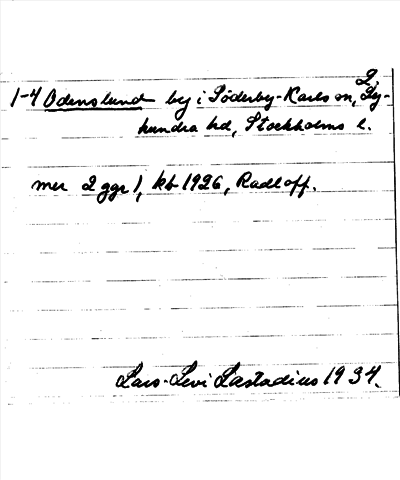 2.
1-4 Odenslund by i Söderby-Karls sn, Ly-
hundra hd, Stockholms l.
mer 2 ggr 1, kb 1926, Radloff.
Lars-Levi Læstadius 1934.